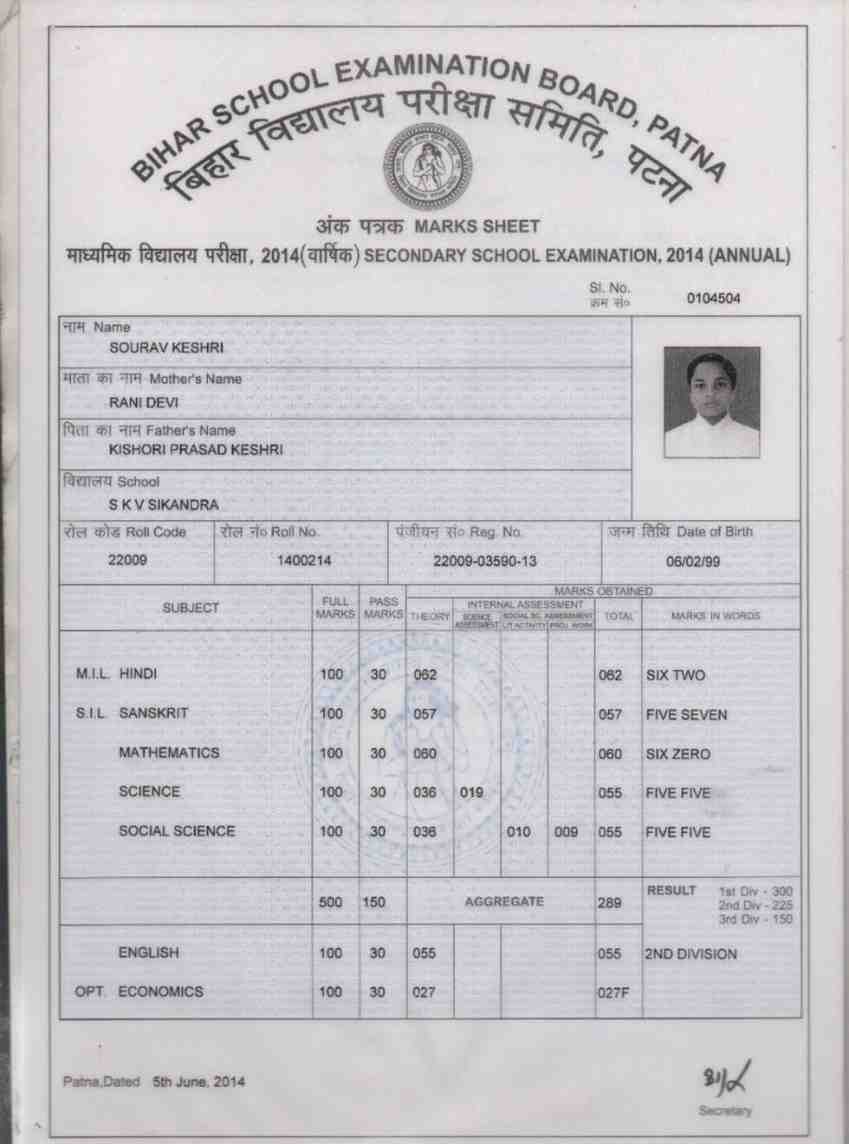 BIHAR SCHOOL EXAMINATION BOARD, PATNA
बिहार विद्यालय परीक्षा समिति, पटना
अंक पत्रक MARKS SHEET
माध्यमिक विद्यालय परीक्षा, 2014(वार्षिक) SECONDARY SCHOOL EXAMINATION, 2014 (ANNUAL)
Sl. No.
क्रम सं० 0104504
नाम Name
SOURAV KESHRI
माता का नाम Mother's Name
RANI DEVI
पिता का नाम Father's Name
KISHORI PRASAD KESHRI
विद्यालय School
S K V SIKANDRA
रोल कोड Roll Code रोल नं० Roll No. पंजीयन सं० Reg. No. जन्म तिथि Date of Birth
22009 1400214 22009-03590-13 06/02/99
MARKS OBTAINED
SUBJECT FULL MARKS PASS MARKS THEORY INTERNAL ASSESSMENT TOTAL MARKS IN WORDS
SCIENCE ASSESSMENT SOCIAL SC. ASSESSMENT
LIT ACTIVITY PROJ. WORK
M.I.L. HINDI 100 30 062 062 SIX TWO
S.I.L. SANSKRIT 100 30 057 057 FIVE SEVEN
MATHEMATICS 100 30 060 060 SIX ZERO
SCIENCE 100 30 036 019 055 FIVE FIVE
SOCIAL SCIENCE 100 30 036 010 009 055 FIVE FIVE
500 150 AGGREGATE 289 RESULT 1st Div - 300
2nd Div - 225
3rd Div - 150
ENGLISH 100 30 055 055 2ND DIVISION
OPT. ECONOMICS 100 30 027 027F
Patna,Dated 5th June, 2014
Secretary